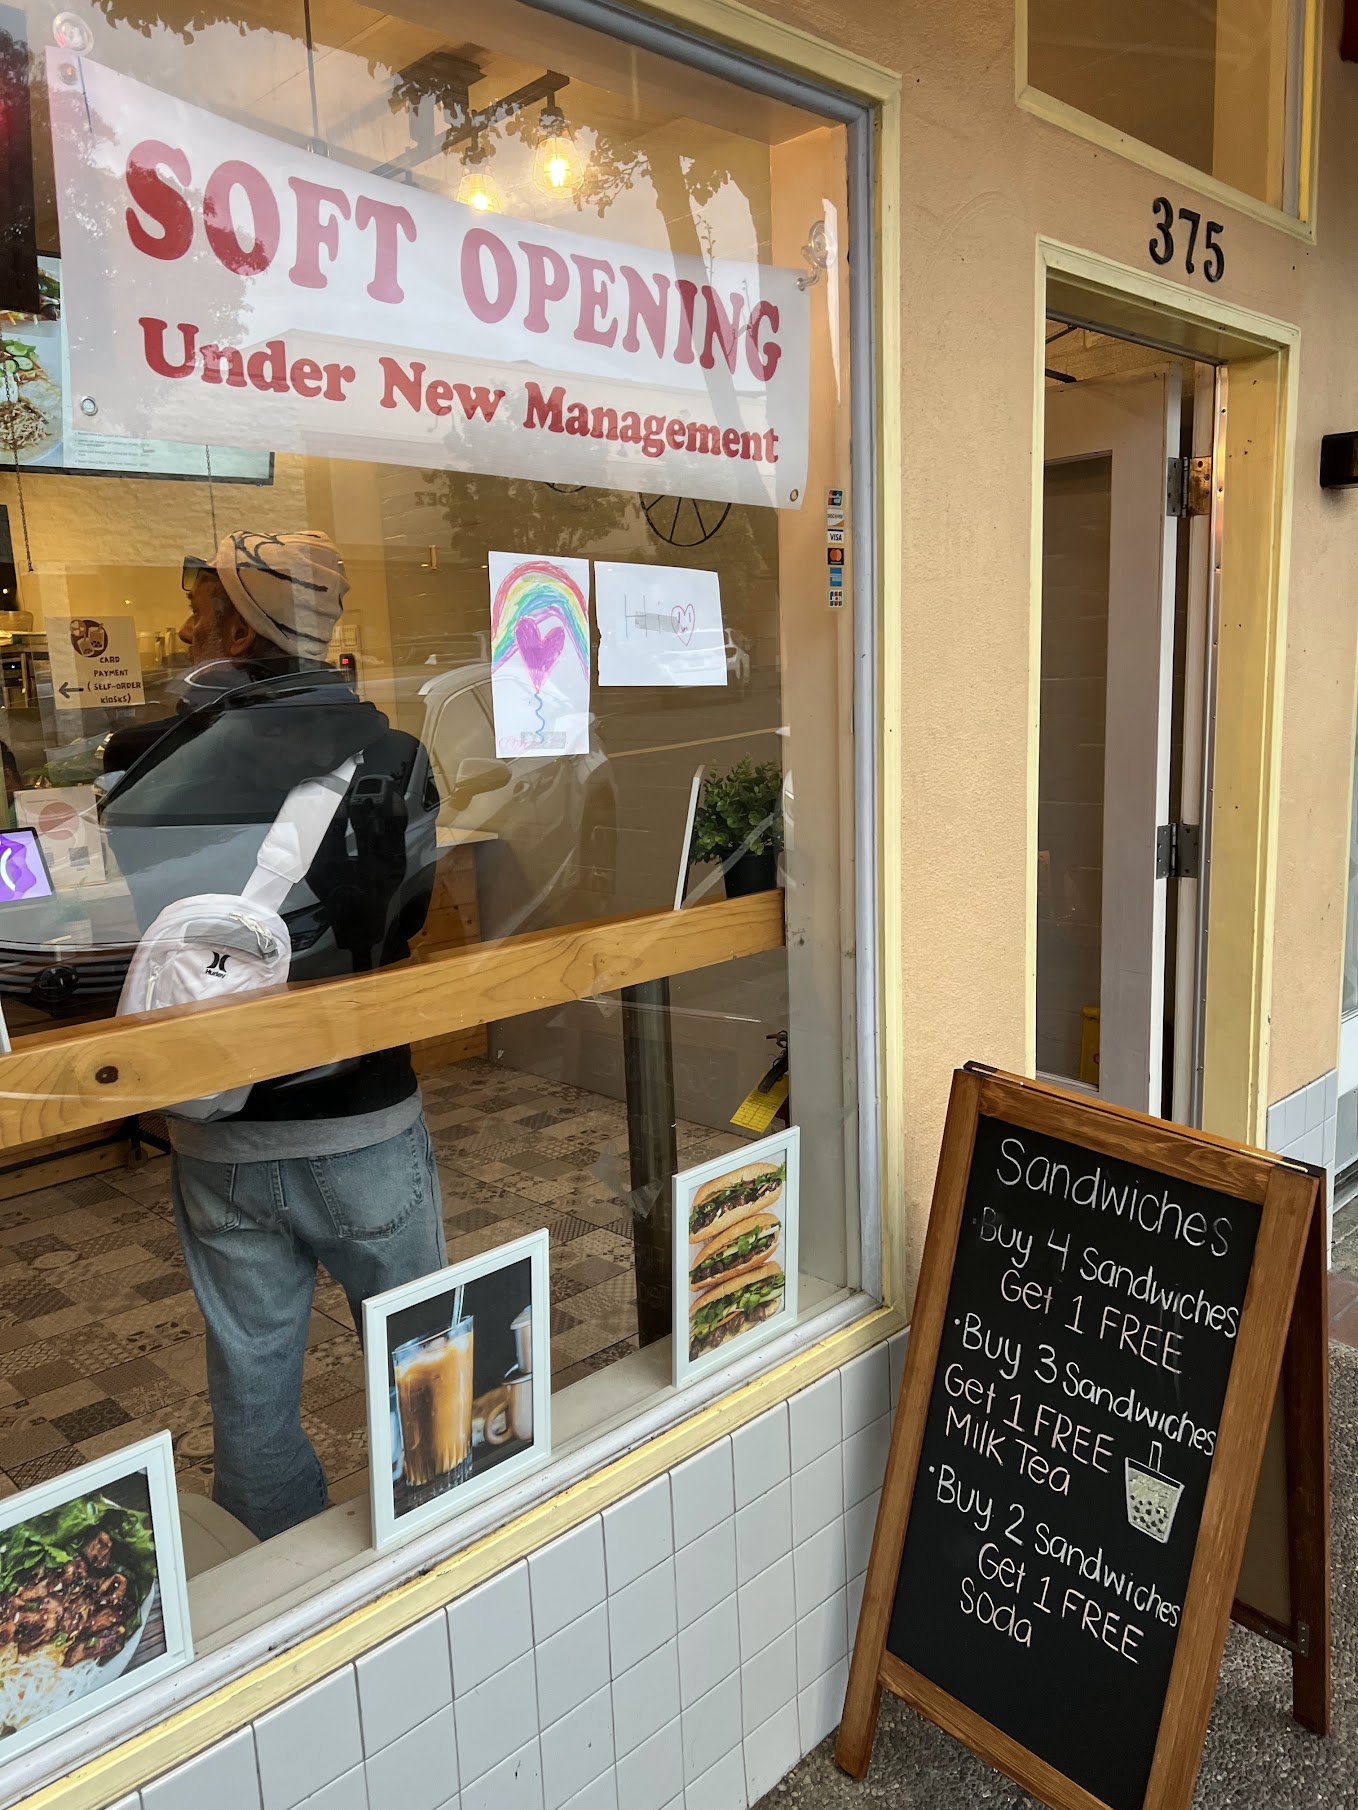 SOFT OPENING
Under New Management
375
DISCOVER
VISA
CARD
PAYMENT
( SELF-ORDER
KIOSKS)
Hurley
Sandwiches
·Buy 4 Sandwiches
Get 1 FREE
·Buy 3 Sandwiches
Get 1 FREE
Milk Tea
·Buy 2 Sandwiches
Get 1 FREE
Soda